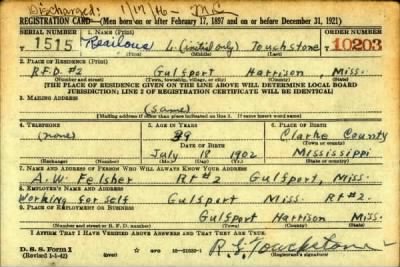 Discharged: 1/17/46 - M.C.
REGISTRATION CARD—(Men born on or after February 17, 1897 and on or before December 31, 1921)
SERIAL NUMBER 1. NAME (Print) ORDER NUMBER
T 1515 L (initial only) Touchstone 10203
2. PLACE OF RESIDENCE (Print)
R.F.D. #2 Gulfport Harrison, Miss.
(Number and street) (Town, township, village, or city) (County) (State)
[THE PLACE OF RESIDENCE GIVEN ON THE LINE ABOVE WILL DETERMINE LOCAL BOARD
JURISDICTION; LINE 2 OF REGISTRATION CERTIFICATE WILL BE IDENTICAL]
3. MAILING ADDRESS
(same)
[Mailing address if other than place indicated on line 2. If same insert word same]
4. TELEPHONE 5. AGE IN YEARS 6. PLACE OF BIRTH
(none) 39 Clarke County
DATE OF BIRTH (Town or county)
July 1902 Mississippi
(Exchange) (Number) (Mo.) (Day) (Yr.) (State or country)
7. NAME AND ADDRESS OF PERSON WHO WILL ALWAYS KNOW YOUR ADDRESS
A. W. Felsher Rt #2 Gulfport, Miss.
8. EMPLOYER'S NAME AND ADDRESS
Working for self Gulfport Miss. Rt #2.
9. PLACE OF EMPLOYMENT OR BUSINESS
Gulfport Harrison Miss.
(Number and street or R. F. D. number) (Town) (County) (State)
I AFFIRM THAT I HAVE VERIFIED ABOVE ANSWERS AND THAT THEY ARE TRUE.
D. S. S. Form 1
(Revised 1-1-42) (over) Touchstone
(Registrant's signature)